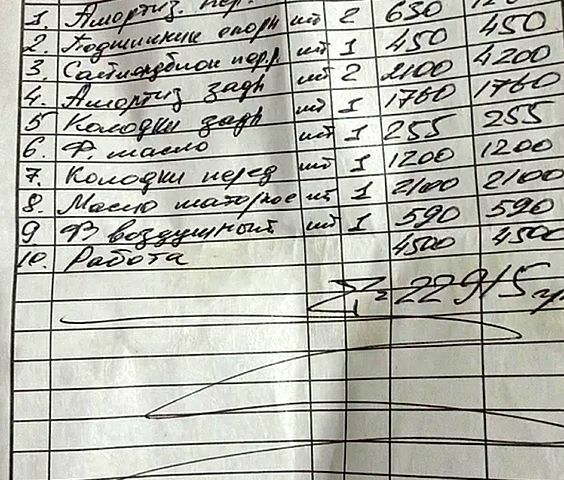 1. Амортиз. пер.
2. Подшипник опорн шт 2 630
3. Сайлендблок пер.р шт 1 450 450
4. Амортиз задн шт 2 2100 4200
5 Колодки задн шт 1 1760 1760
6. Ф. масло шт 1 255 255
7. Колодки перед шт 1 1200 1200
8. Масло маторное шт 1 2100 2100
9 Ф воздушный шт 1 590 590
10. Работа 4500 4500
Σ = 22915 гр